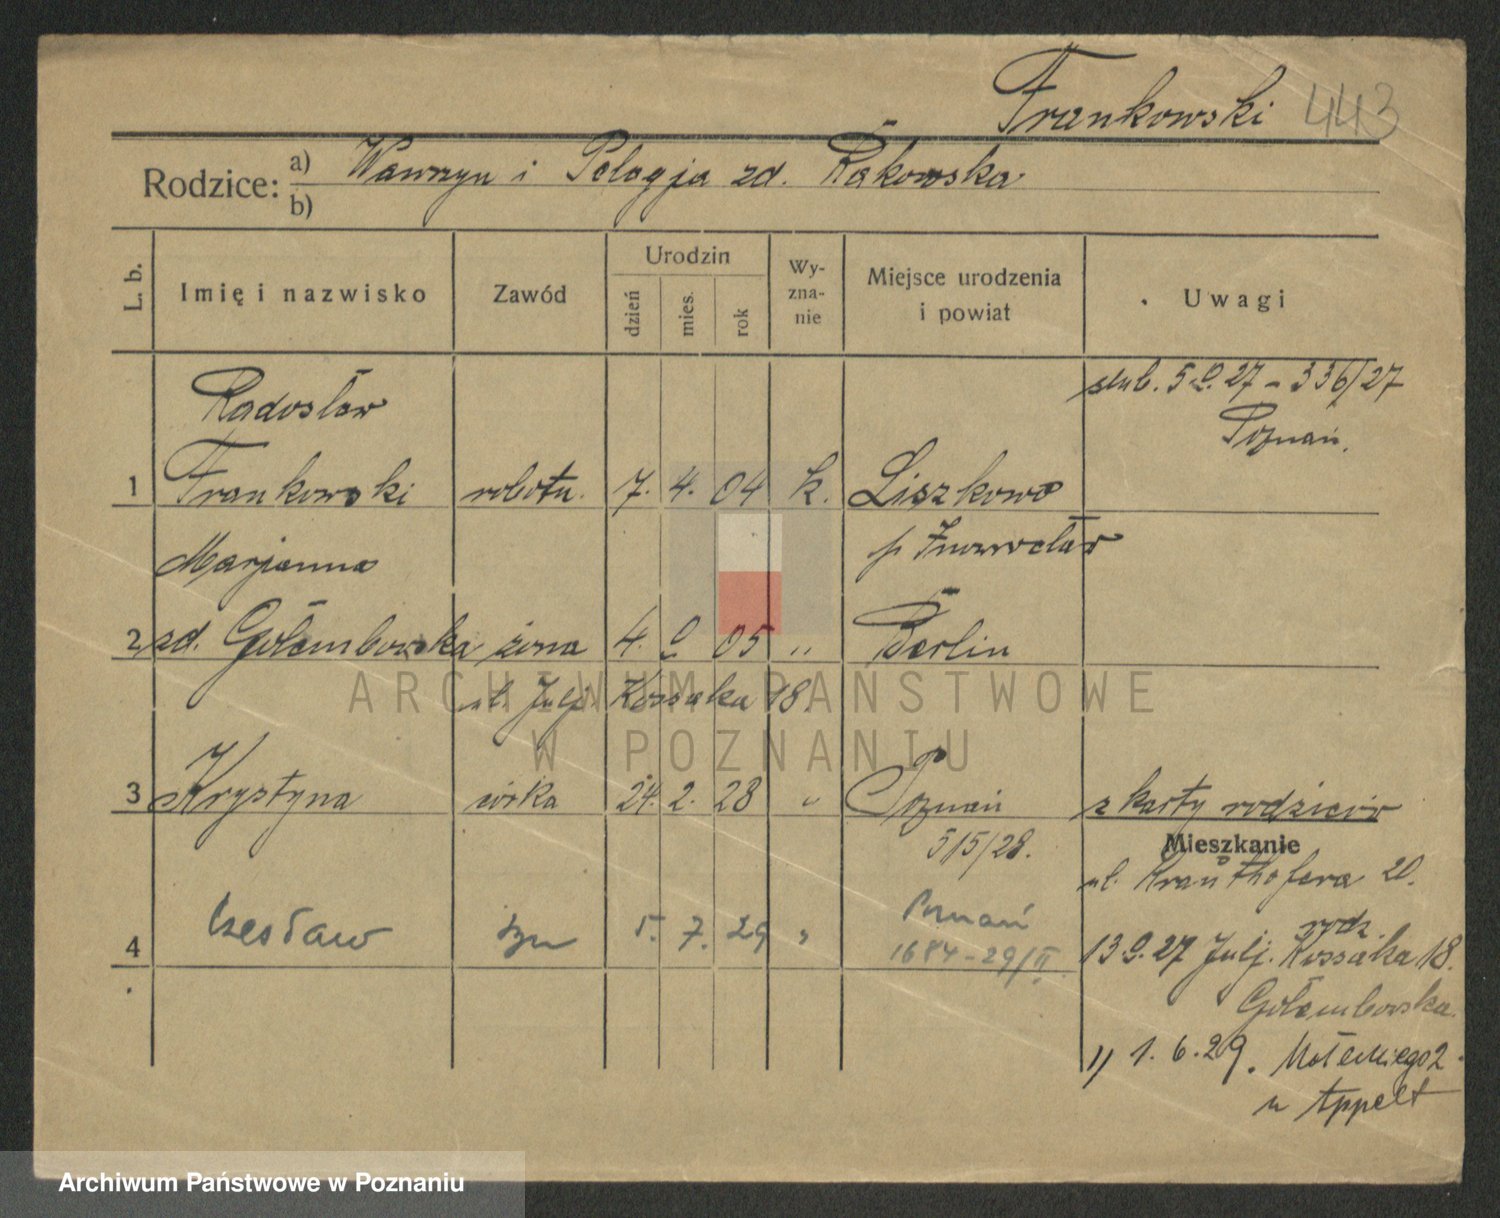 Frankowski 443
Rodzice: a) Wawrzyn i Pelagja zd. Rąkowska
b)
L. b. Imię i nazwisko Zawód Urodzin dzień mies. rok Wy-zna-nie Miejsce urodzenia i powiat Uwagi
ślub. 5.9.27 - 336/27
Radosław
Poznań.
1 Frankowski robotn. 7. 4. 04 k. Liszkowo
Marjanna p Inowrocław
2 zd. Gołembowska żona 4. 9. 05 " Berlin
ul. Julj. Kossaka 18.
3 Krystyna córka 24. 2. 28 " Poznań z karty rodziców
515/28. Mieszkanie
ul. Krauthofera 20.
4 Czesław syn 5. 7. 29 " Poznań rodz.
1684-29/II 13.9.27 Julj. Kossaka 18.
Gołembowska.
1) 1.6.29. Małeckiego 2
u Appelt
ARCHIWUM PAŃSTWOWE
W POZNANIU
Archiwum Państwowe w Poznaniu